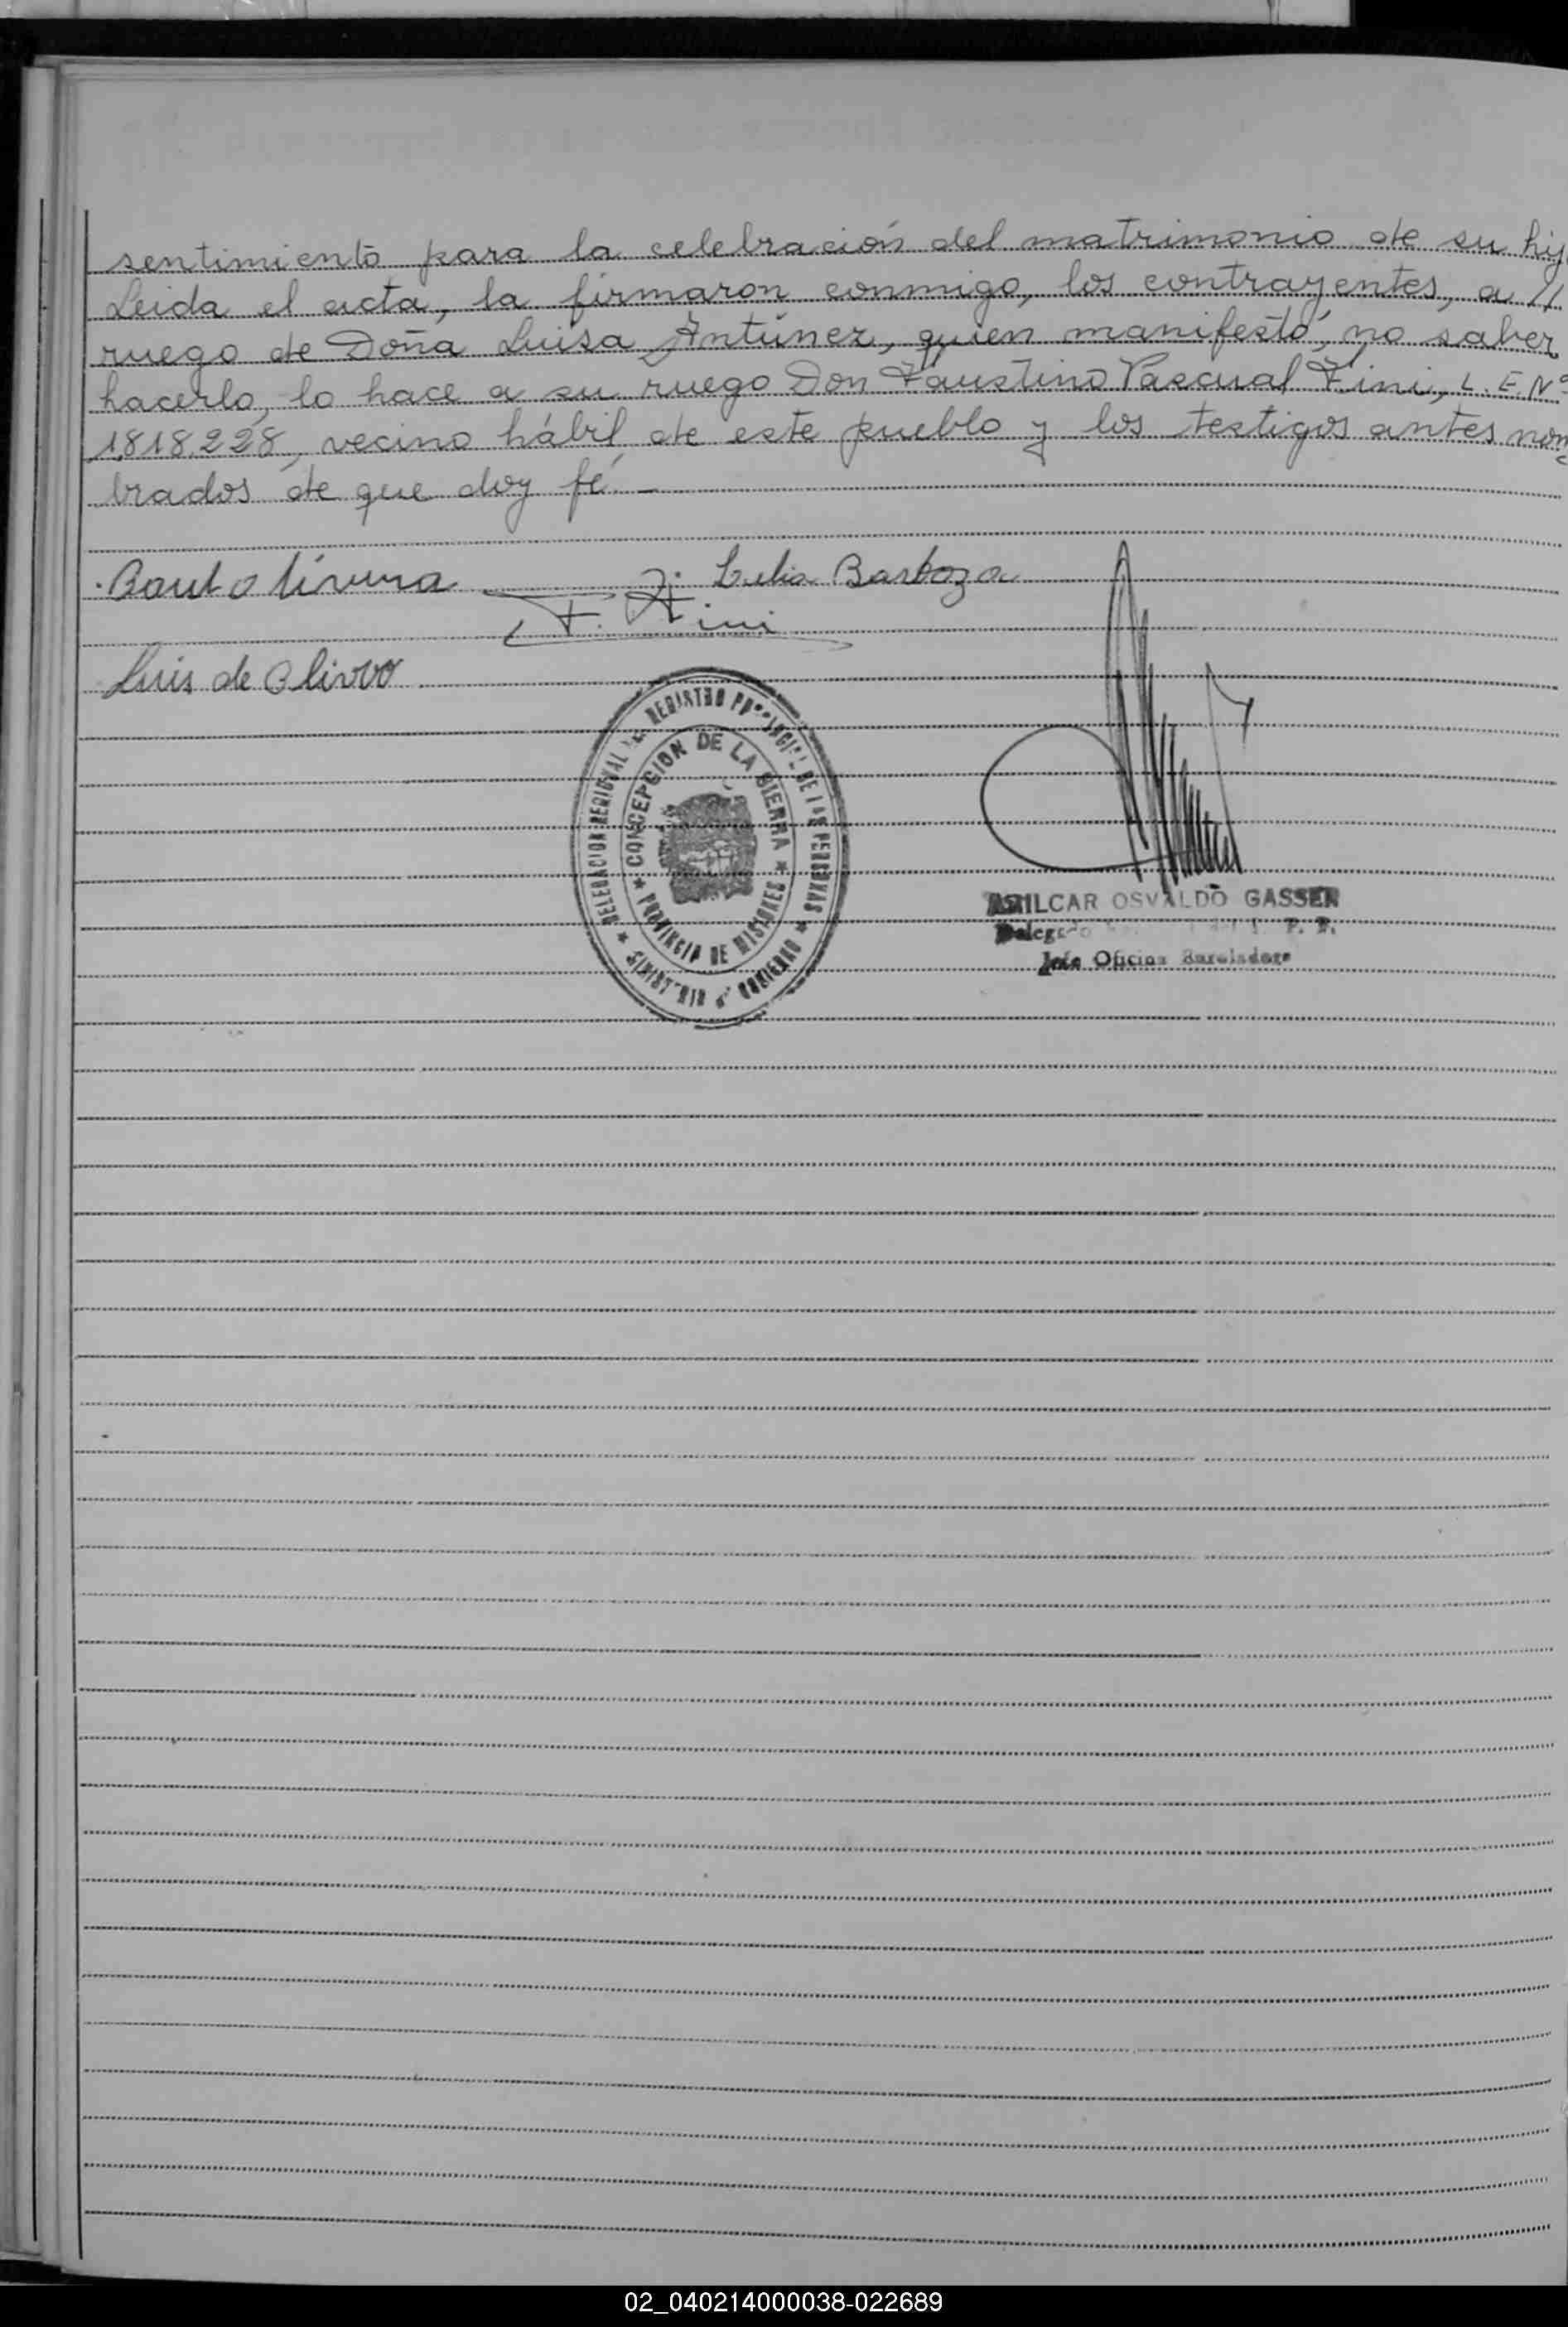 sentimiento para la celebración del matrimonio de su hij
Leida el acta, la firmaron conmigo, los contrayentes, a //
ruego de Doña Luisa Antúnez, quien manifestó, no saber
hacerlo, lo hace a su ruego Don Faustino Pascual Fini, L.E. Nº
1.818.228, vecino hábil de este pueblo y los testigos antes nom
brados de que doy fé.—
Lulia Barboza
F. Fini
Luis de Olivo
DELEGACION REGIONAL REGISTRO PROVINCIAL DE LAS PERSONAS
CONCEPCION DE LA SIERRA
PROVINCIA DE MISIONES
MINISTERIO GOBIERNO
AMILCAR OSVALDO GASSER
Jefe Oficina
02_040214000038-022689